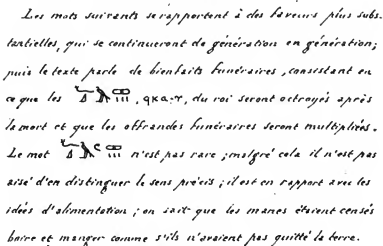 Les mots suivants se rapportent à des faveurs plus subs-
tantielles, qui se continueront de génération en génération;
puis le texte parle de bienfaits funéraires, consistant en
ce que les , du roi seront octroyés après
la mort et que les offrandes funéraires seront multipliées.
Le mot n'est pas rare; malgré cela il n'est pas
aisé d'en distinguer le sens précis; il est en rapport avec les
idées d'alimentation; on sait que les manes étaient censés
boire et manger comme s'ils n'avaient pas quitté la terre.